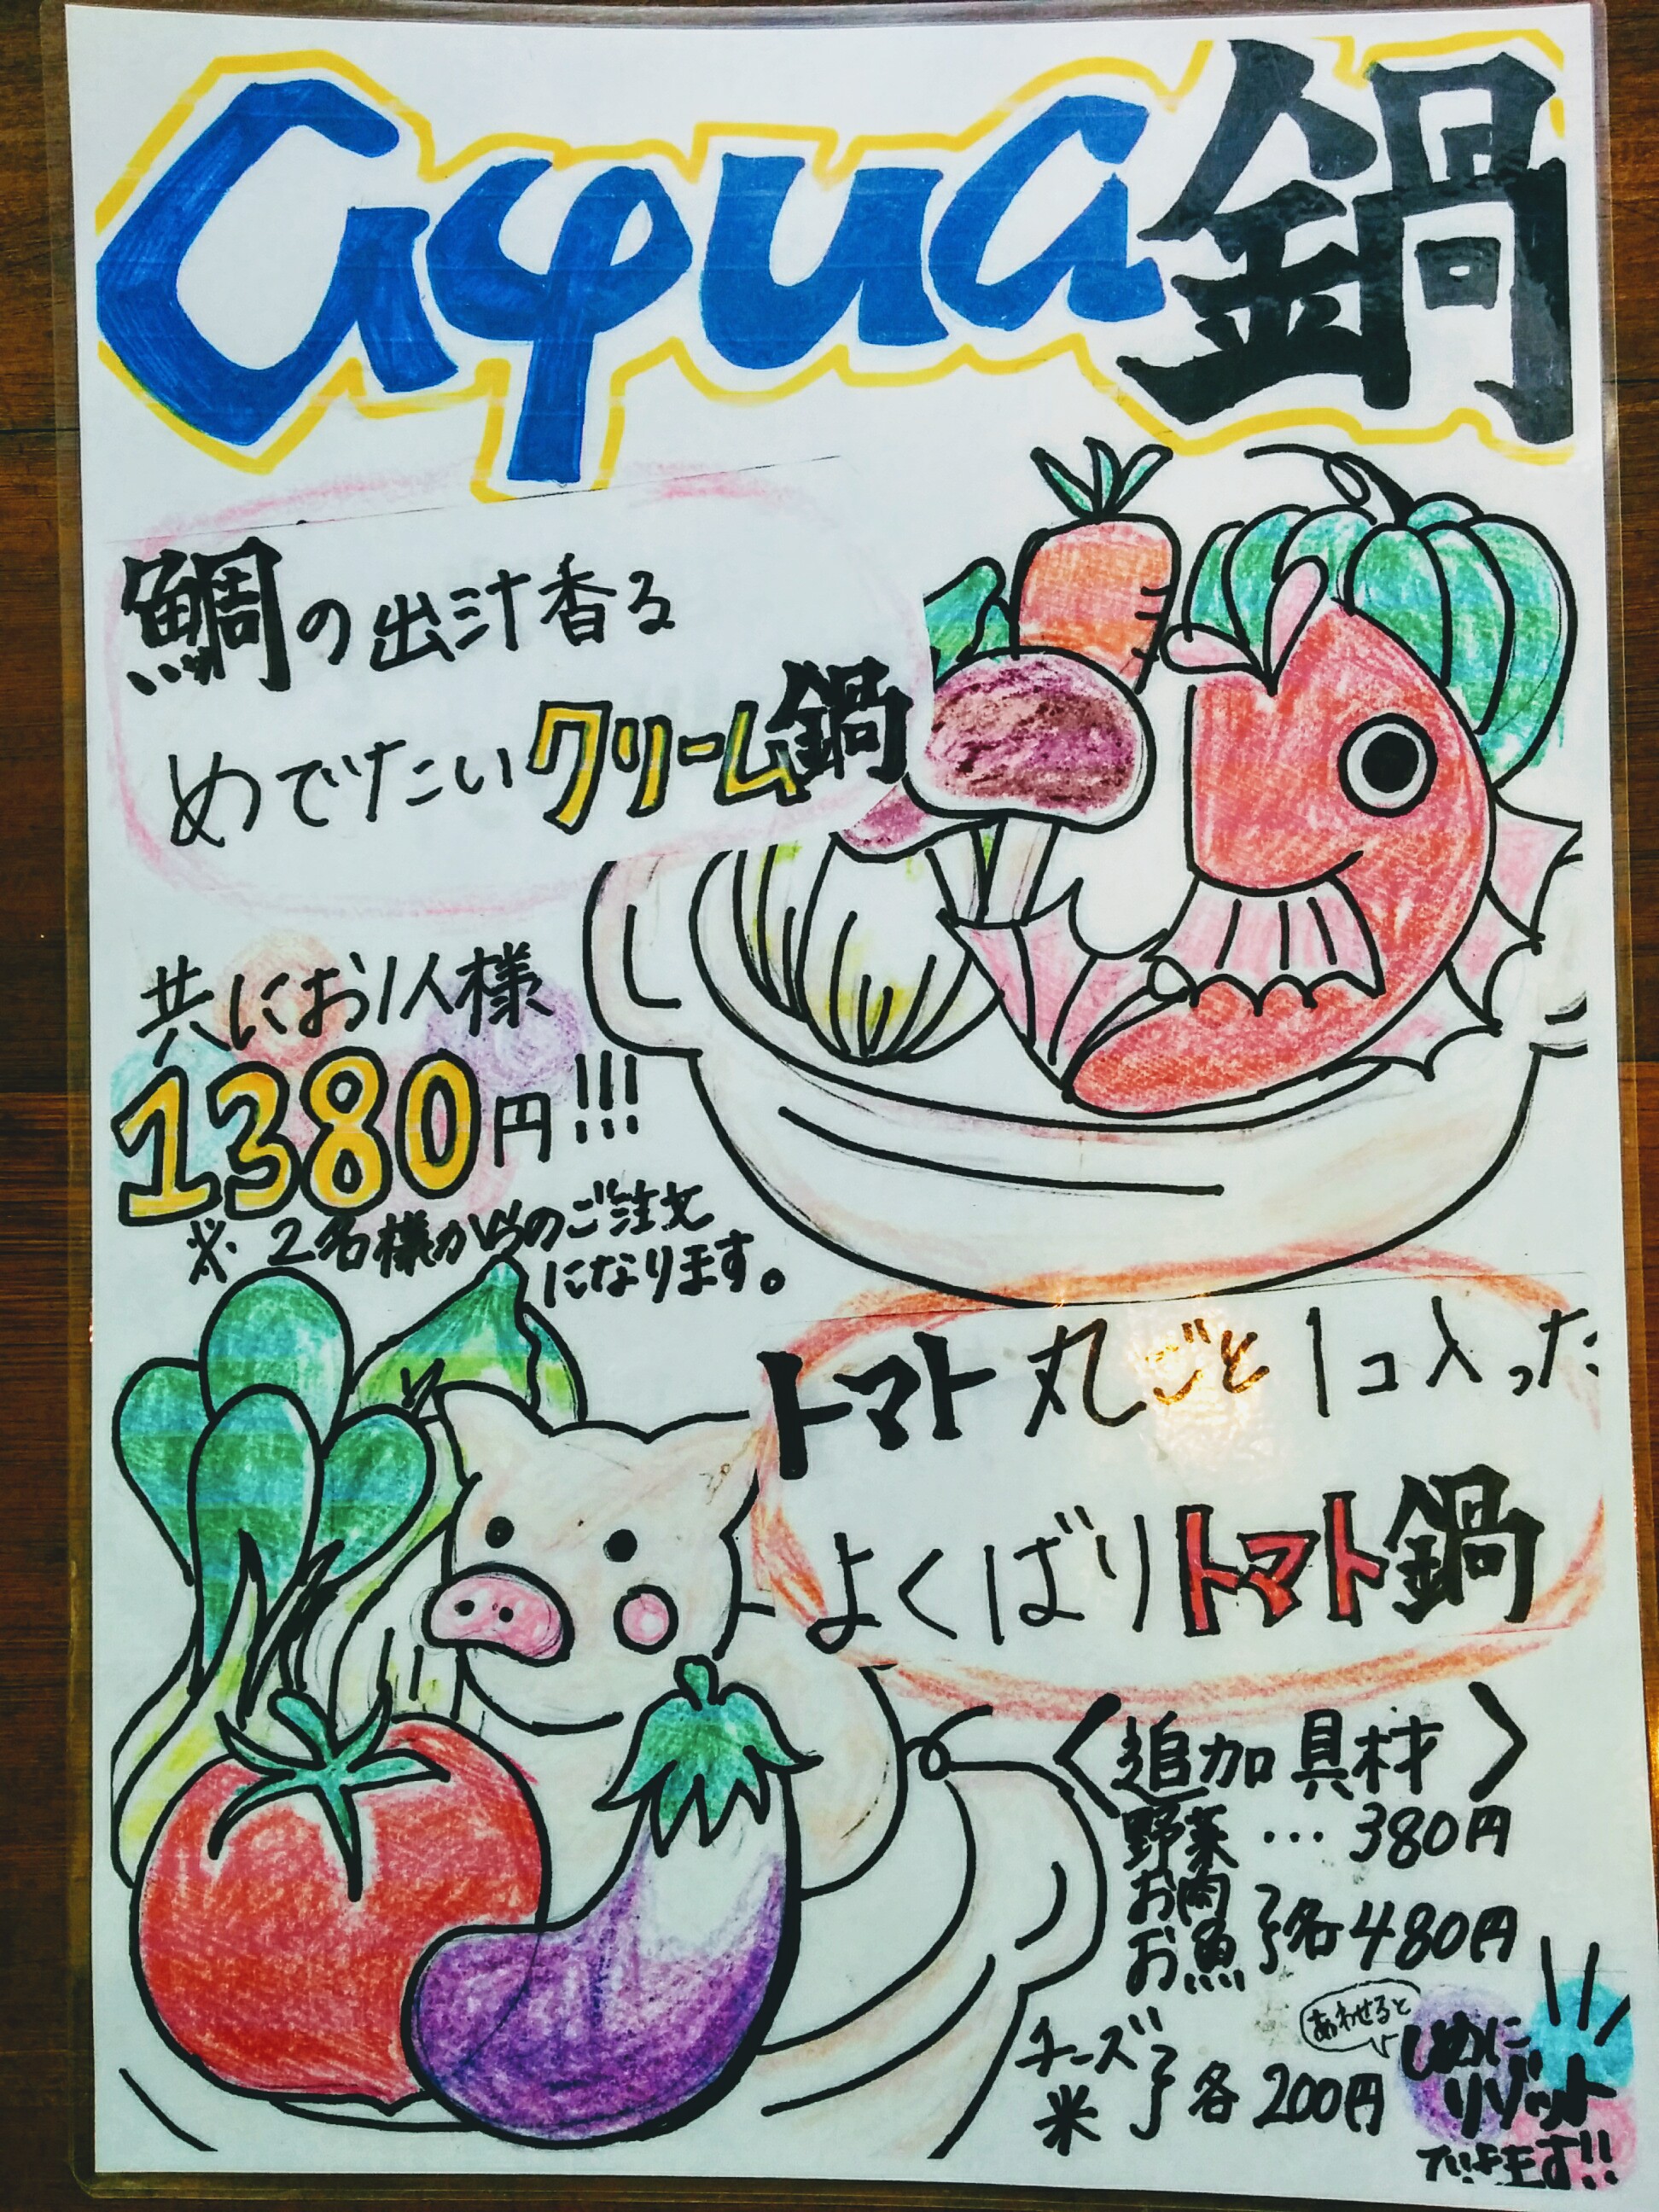 aqua鍋
鯛の出汁香る
めでたいクリーム鍋
共にお1人様
1380円!!!
※2名様からのご注文
になります。
トマト丸ごと1コ入った
よくばりトマト鍋
〈追加具材〉
野菜…380円
お肉
お魚 各480円
チーズ
米 各200円
あわせると
しめに
リゾット
できます!!